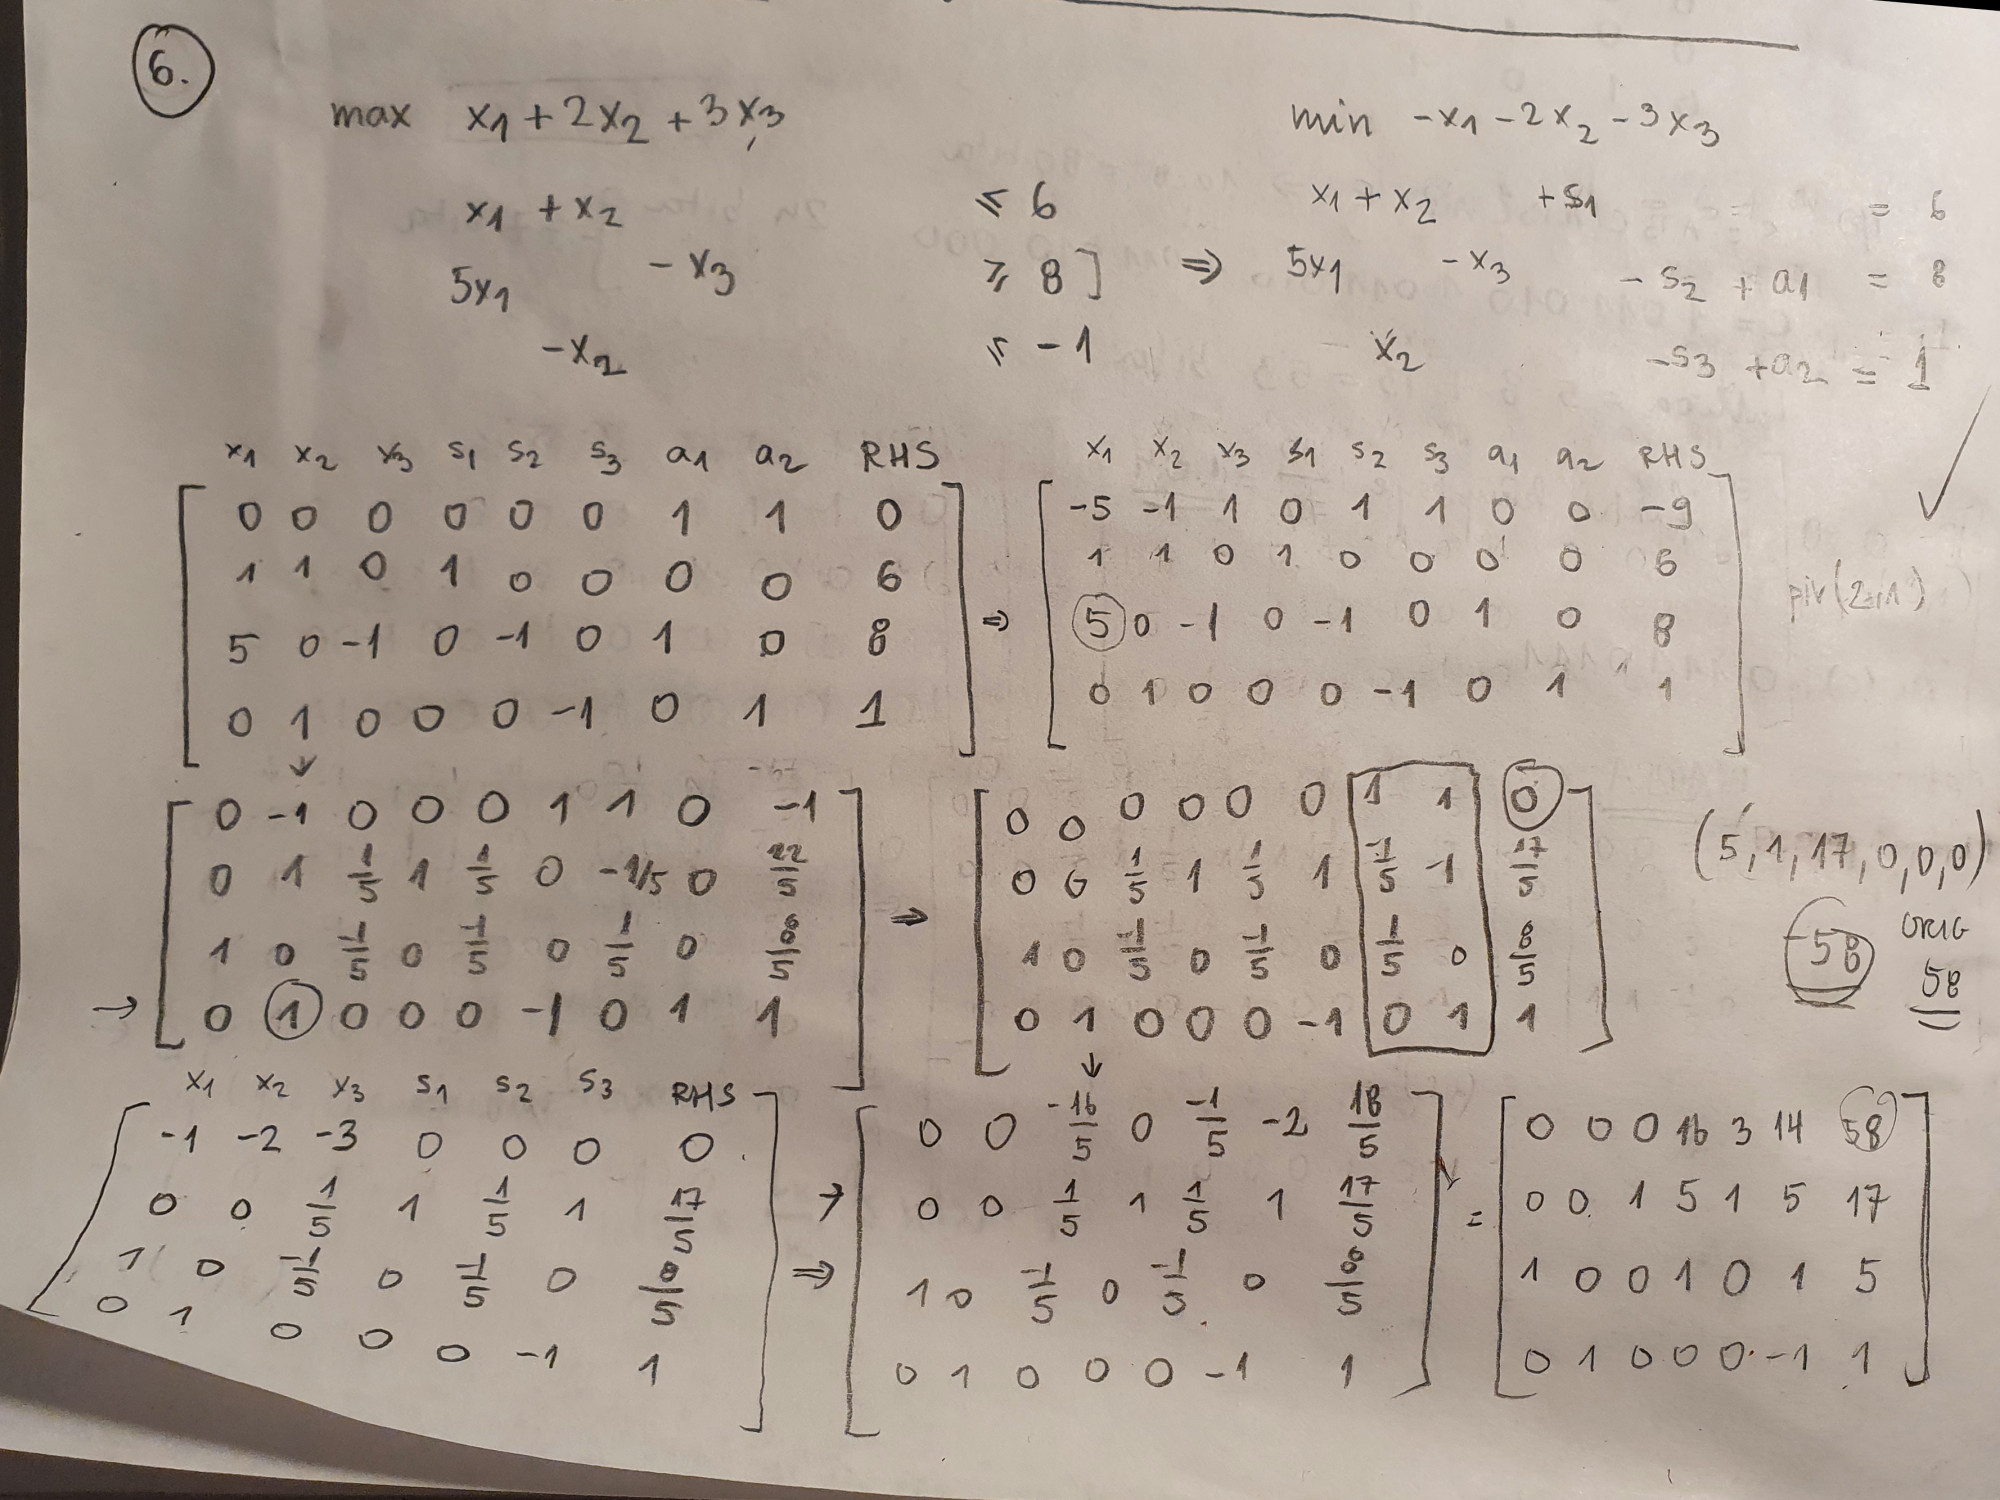 6.
max x1 + 2x2 + 3x3
min -x1 - 2x2 - 3x3
x1 + x2 ≤ 6
x1 + x2 + s1 = 6
5x1 - x3 ≥ 8 ] ⇒ 5x1 - x3 - s2 + a1 = 8
-x2 ≤ -1
x2 - s3 + a2 = 1
x1 x2 x3 s1 s2 s3 a1 a2 RHS
0 0 0 0 0 0 1 1 0
1 1 0 1 0 0 0 0 6
5 0 -1 0 -1 0 1 0 8
0 1 0 0 0 -1 0 1 1
⇒
x1 x2 x3 s1 s2 s3 a1 a2 RHS
-5 -1 1 0 1 1 0 0 -9
1 1 0 1 0 0 0 0 6
5 0 -1 0 -1 0 1 0 8
0 1 0 0 0 -1 0 1 1
piv(2,1)
↓
0 -1 0 0 0 1 1 0 -1
0 1 1/5 1 1/5 0 -1/5 0 22/5
1 0 -1/5 0 -1/5 0 1/5 0 8/5
→ 0 1 0 0 0 -1 0 1 1
⇒
0 0 0 0 0 0 1 1 0
0 0 1/5 1 1/5 1 -1/5 -1 17/5
1 0 -1/5 0 -1/5 0 1/5 0 8/5
0 1 0 0 0 -1 0 1 1
(5, 1, 17, 0, 0, 0)
-58
ORIG
58
x1 x2 x3 s1 s2 s3 RHS
-1 -2 -3 0 0 0 0
0 0 1/5 1 1/5 1 17/5
1 0 -1/5 0 -1/5 0 8/5
0 1 0 0 0 -1 1
→
⇒
↓
0 0 -16/5 0 -1/5 -2 18/5
0 0 1/5 1 1/5 1 17/5
1 0 -1/5 0 -1/5 0 8/5
0 1 0 0 0 -1 1
=
0 0 0 16 3 14 58
0 0 1 5 1 5 17
1 0 0 1 0 1 5
0 1 0 0 0 -1 1